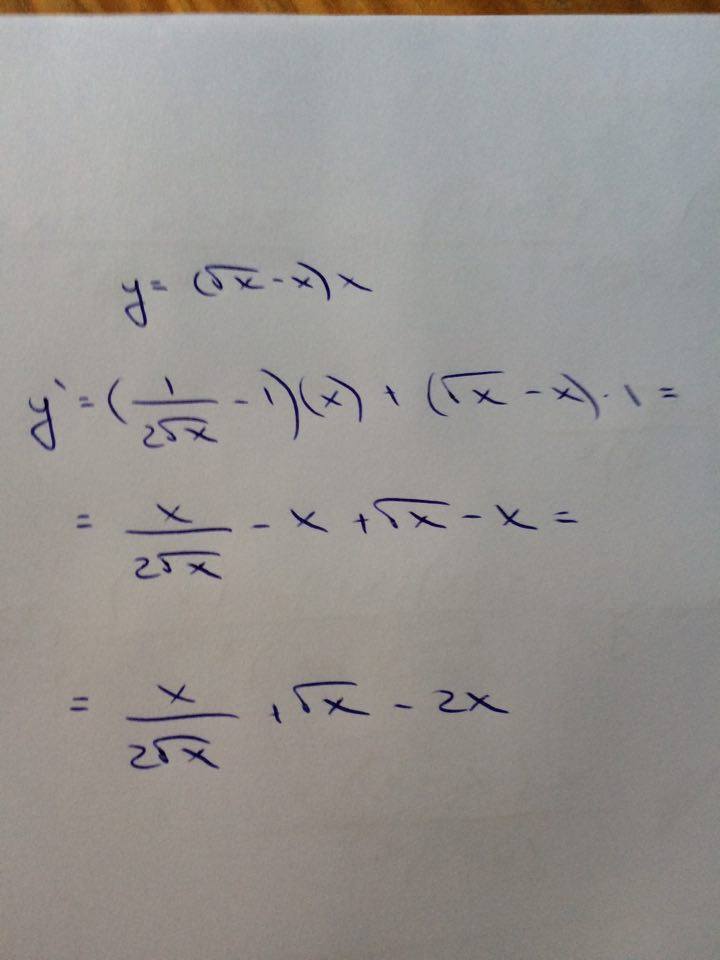 y = (√x - x) x
y' = (1/(2√x) - 1)(x) + (√x - x) · 1 =
= x/(2√x) - x + √x - x =
= x/(2√x) + √x - 2x